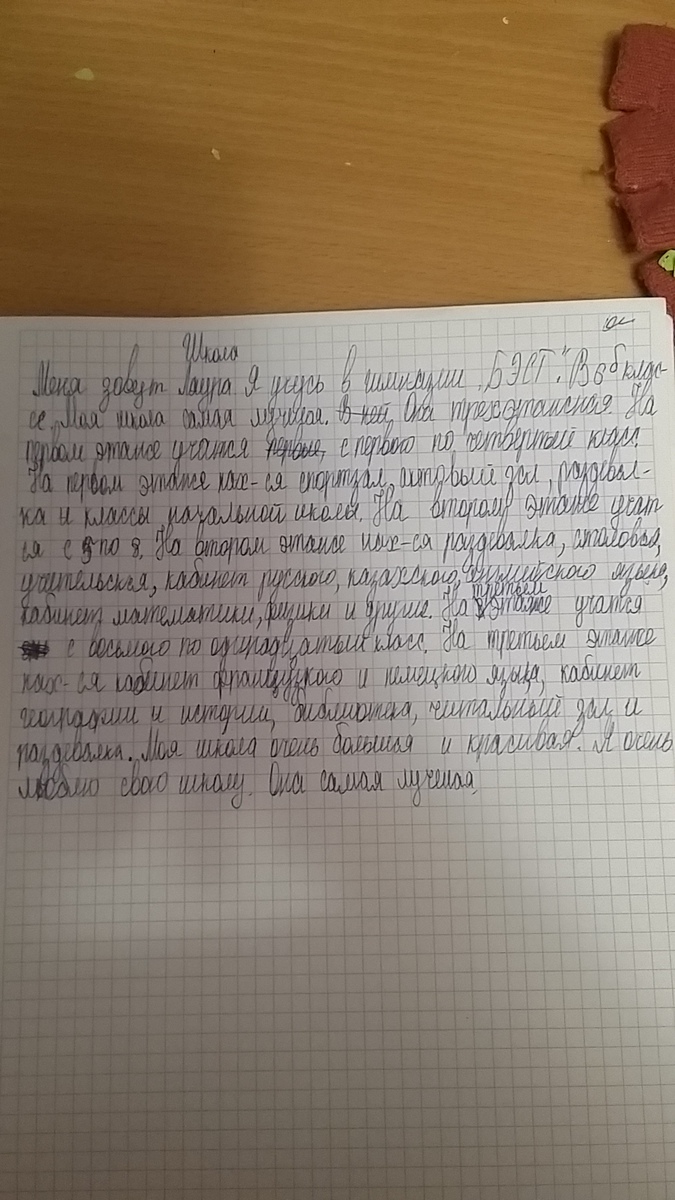 Школа
Меня зовут Лаура Я учусь в гимназии „БЭСТ". В 6 б клас-
се. Моя школа самая лучшая. В ней, Она трехэтажная. На
первом этаже учатся первые, с первого по четвертый класс.
На первом этаже нах-ся спортзал, актовый зал, раздевал-
ка и классы начальной школы. На втором этаже учат
ся с 5 по 8. На втором этаже нах-ся раздевалка, столовая,
учительская, кабинет русского, казахского, английского языка,
кабинет математики, физики и другие. На третьем этаже учатся
с восьмого по одинадцатый класс. На третьем этаже
нах-ся кабинет французкого и немецкого языка, кабинет
географии и истории, библиотека, читальный зал и
раздевалка. Моя школа очень большая и красивая. Я очень
люблю свою школу. Она самая лучшая.